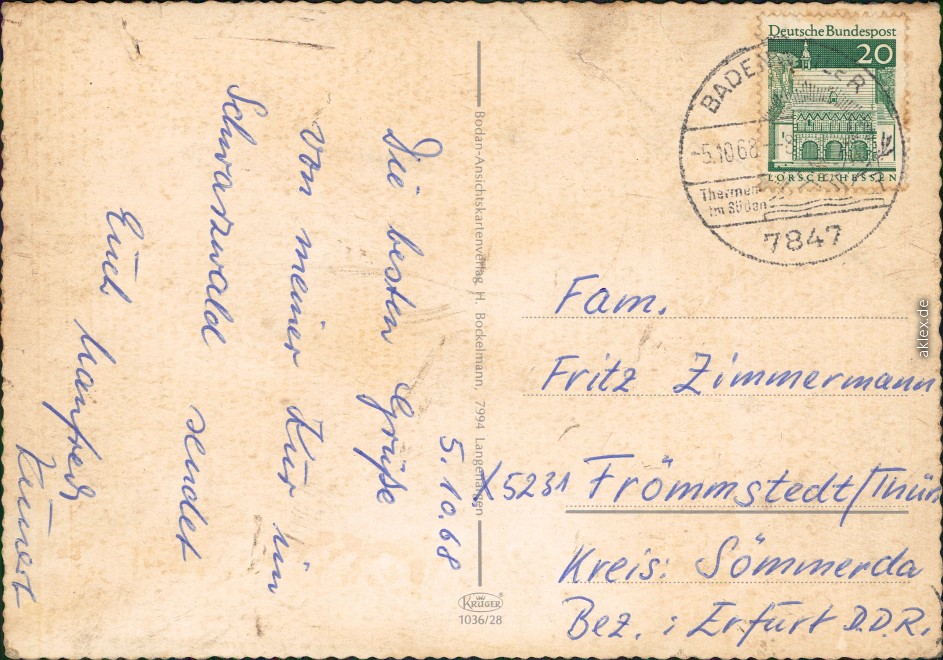 5. 10. 68
Die besten Grüße
von meiner Kur im
Schwarzwald sendet
Euch Manfred
Bodan-Ansichtskartenverlag H. Bockelmann, 7994 Langenargen
KRÜGER
1036/28
Deutsche Bundespost
20
LORSCH/HESSEN
BADENWEILER
-5.10.68
Thermen
im Süden
7847
Fam.
Fritz Zimmermann
X5231 Frömmstedt/Thür
Kreis: Sömmerda
Bez.: Erfurt D.D.R.
aklex.de